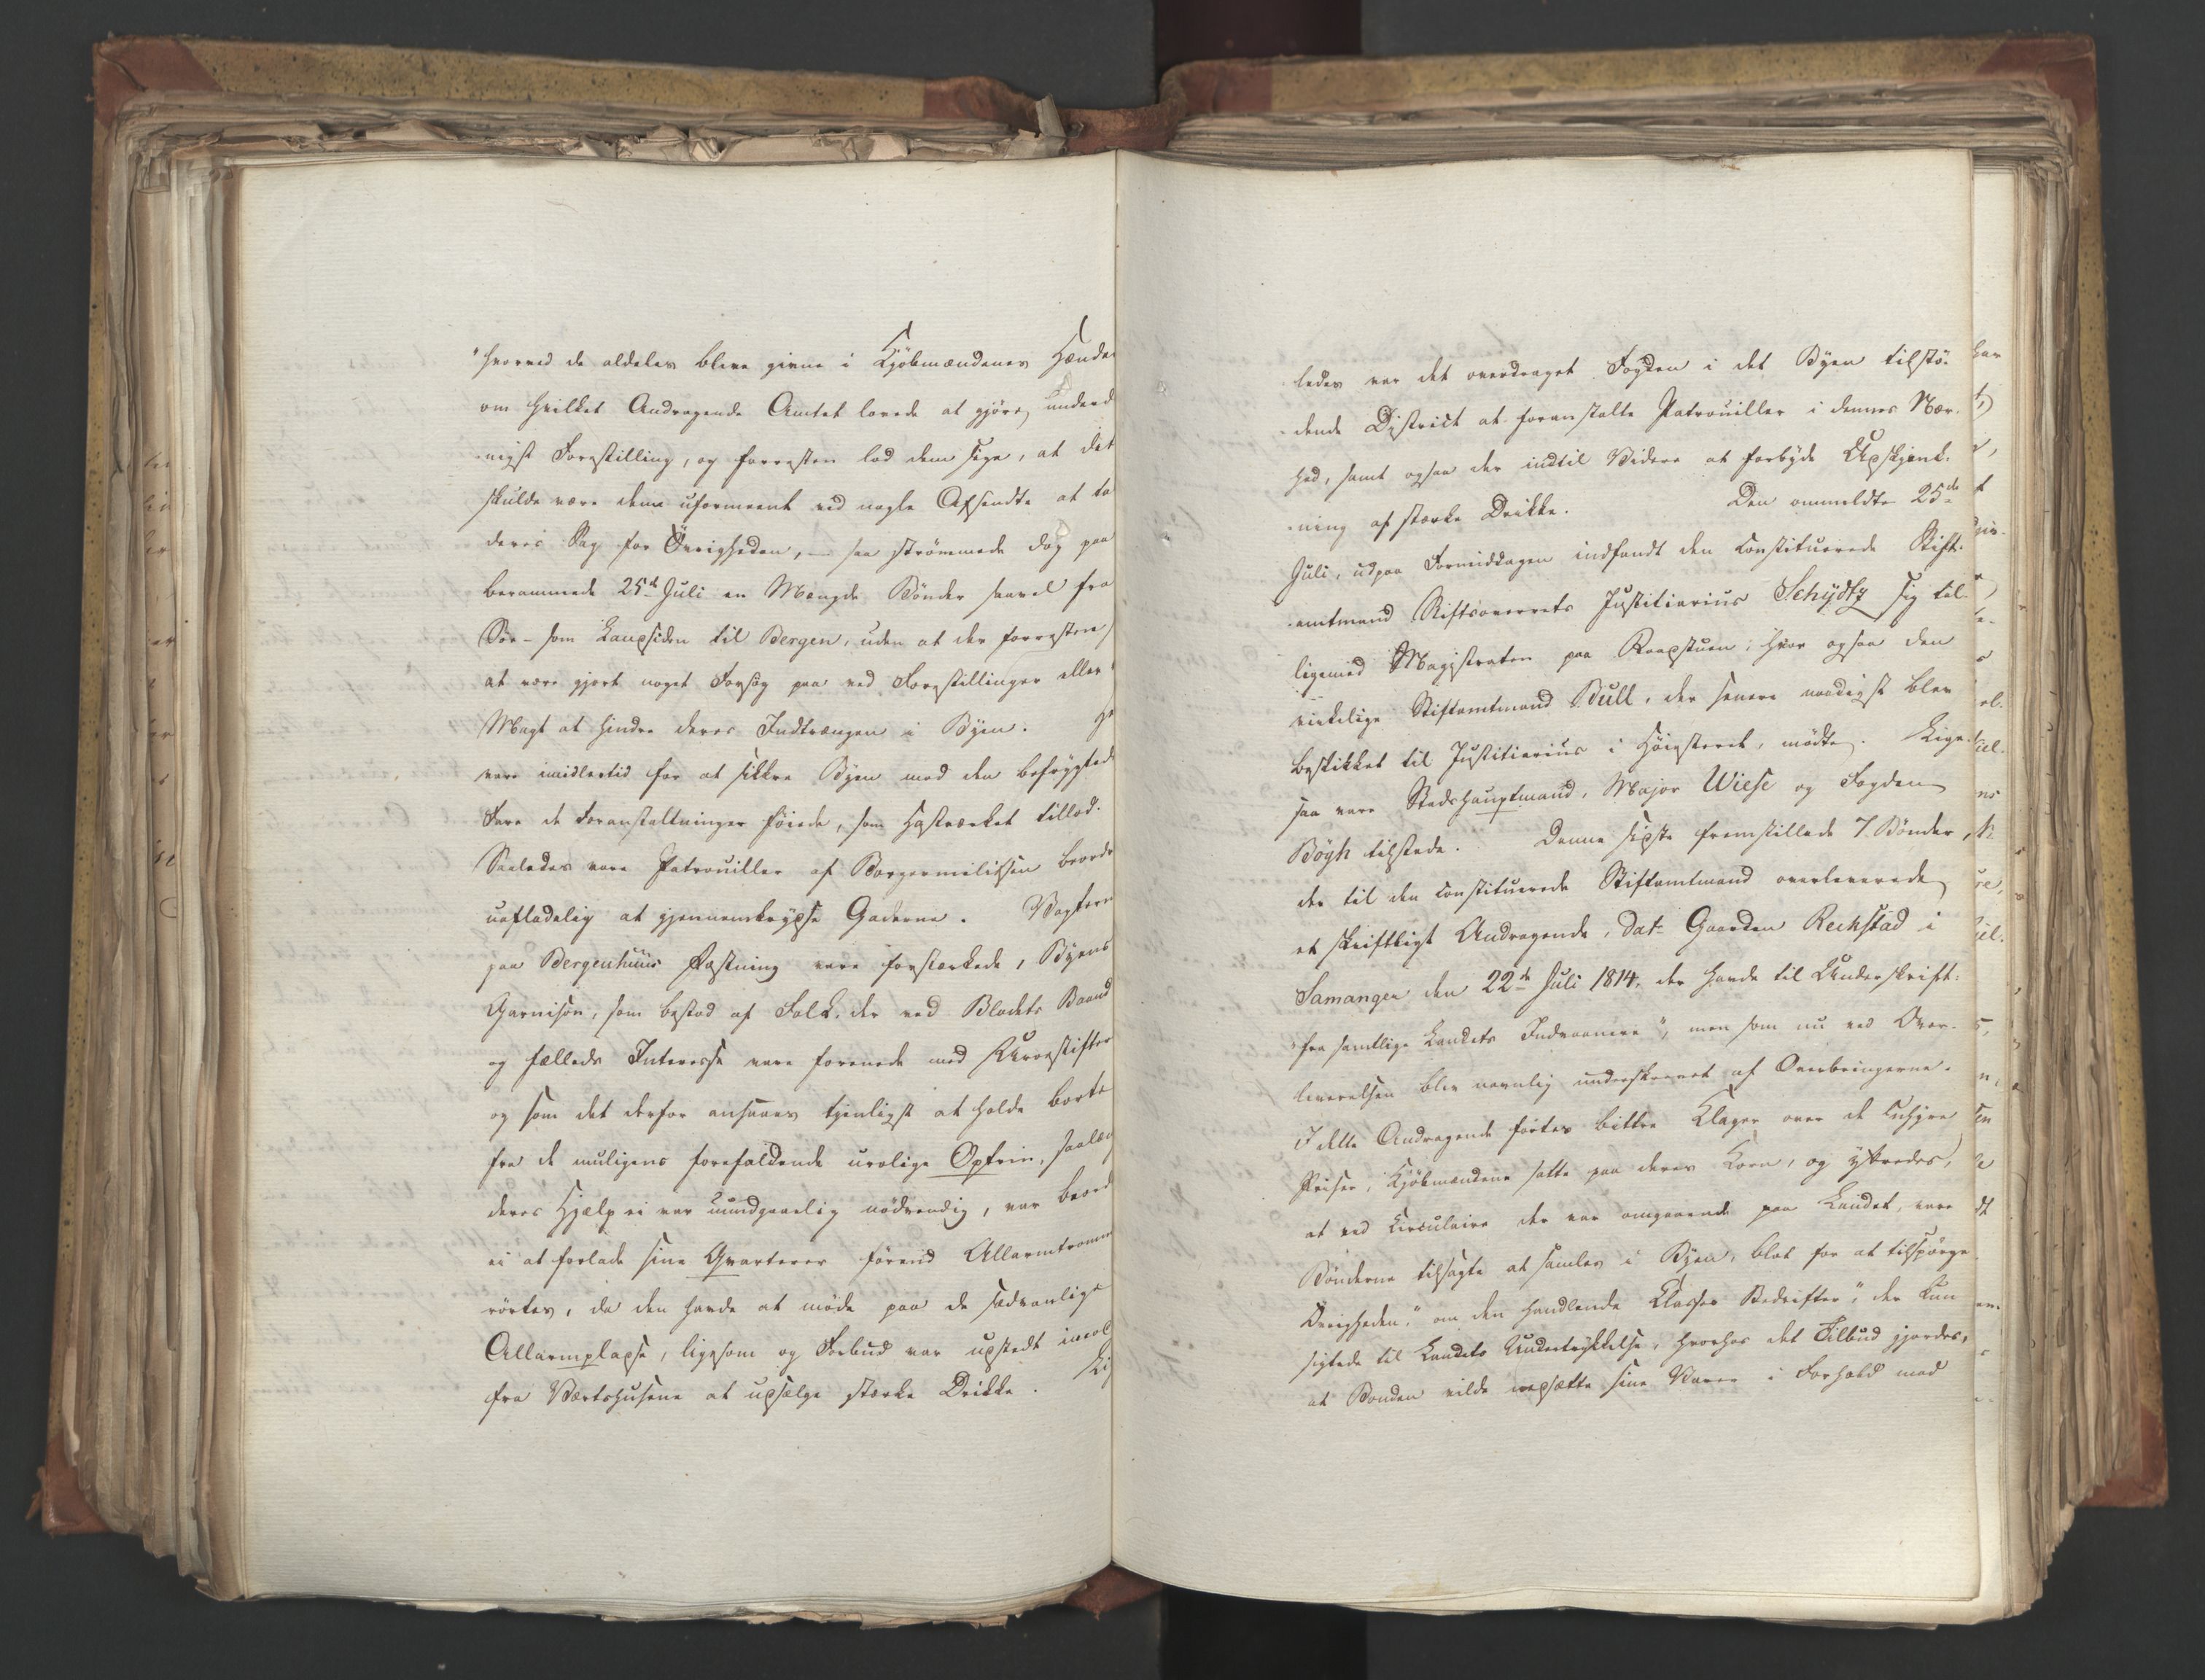 "hvorved de aldeles bleve givne i Kjöbmændenes Hænder
om hvilket Andragende Amtet lovede at gjöre underd
nigst Forestilling, og forresten lod dem sige, at det
skulde være dem uformeent ved nogle Afsendte at ta
deres Sag for Övrigheden, — saa strömmede dog paa
berammede 25de Juli en Mængde Bönder saavel fra
Sör- som Langsiden til Bergen, uden at der forresten
at være gjort noget Forsög paa ved Forestillinger eller
Magt at hindre deres Indtrængen i Byen.
vare imidlertid for at sikkre Byen mod den befrygtede
Fare de Foranstaltninger föiede, som Hastværket tillod.
Saaledes vare Patrouiller af Borgermilitsen beordr
uafladelig at gjennemkrydse Gaderne. Vagterne
paa Bergenhuus Fæstning vare forstærkede, Byens
Garnison, som bestod af Folk, der ved Blodets Baand
og fælleds Interesse vare forenede med Urostifter
og som det derfor ansaaes tjenligst at holde borte
fra de muligens forefaldende urolige Optrin, saalæn
deres Hjælp ei var uundgaaelig nödvendig, var beord
ei at forlade sine Qvarterer förend Allarmtromm
rörtes, da den havde at möde paa de sædvanlige
Allarmpladse, ligesom og Forbud var udstedt imod
fra Værtshusene at udsælge stærke Drikke. Li
ledes var det overdraget Fogden i det Byen tilstö-
dende District at foranstalte Patrouiller i dennes Nær-
hed, samt ogsaa der indtil Videre at forbyde Udskjenk-
ning af stærke Drikke. Den ommeldte 25de
Juli, udpaa Formiddagen indfandt den constituerede Stift-
amtmand Stiftsoverrets Justitiarius Schydtz sig til-
ligemed Magistraten paa Raadstuen, hvor ogsaa den
virkelige Stiftamtmand Bull, der senere naadigst blev
beskikket til Justitiarius i Höiesteret, mödte. Lige-
saa vare Stadshauptmand, Major Wiese og Fogden
Böyh tilstede. Denne sidste fremstillede 7 Bönder,
der til den constituerede Stiftamtmand overleverede
et skriftligt Andragende, dat. Gaarden Reckstad i
Samanger den 22de Juli 1814, der havde til Underskrift:
"fra samtlige Landets Indvaanere", men som nu ved Over-
leverelsen blev navnlig underskrevet af Overbringerne.
I dette Andragende förtes bittre Klager over de luhyre
Priser, Kjöbmændene satte paa deres Korn, og yttredes,
at ved Circulaire der var omgaaende paa Landet, vare
Bönderne tilsagte at samles i Byen, blot for at tilspörge
Övrigheden "om den handlende Classes Bedrifter", der kun
sigtede til Landets Undertrykkelse, hvorhos det Tilbud gjordes,
at Bonden vilde nedsætte sine Varer i Forhold med